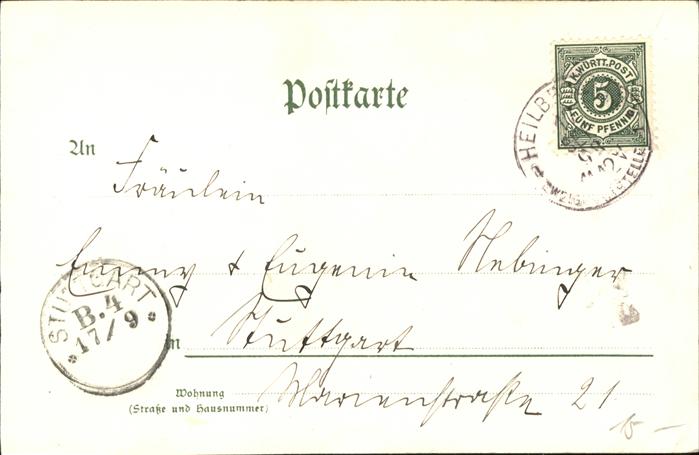 K. WÜRTT. POST
5
FÜNF PFENNIG
HEILBR
Postkarte
An
Fräulein
Emmy & Eugenie Nebinger
STUTTGART
B. 4
17/ 9
in Stuttgart
Wohnung
(Straße und Hausnummer)
Marienstraße 21
15 –